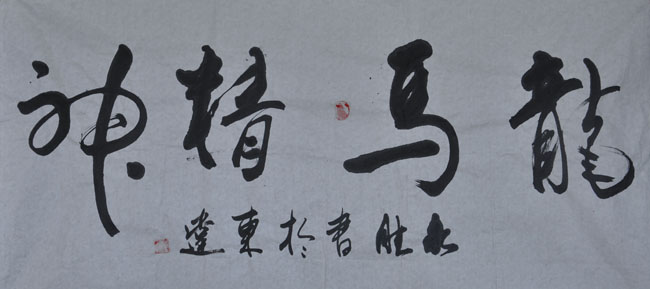 龍馬精神
永胜書於東